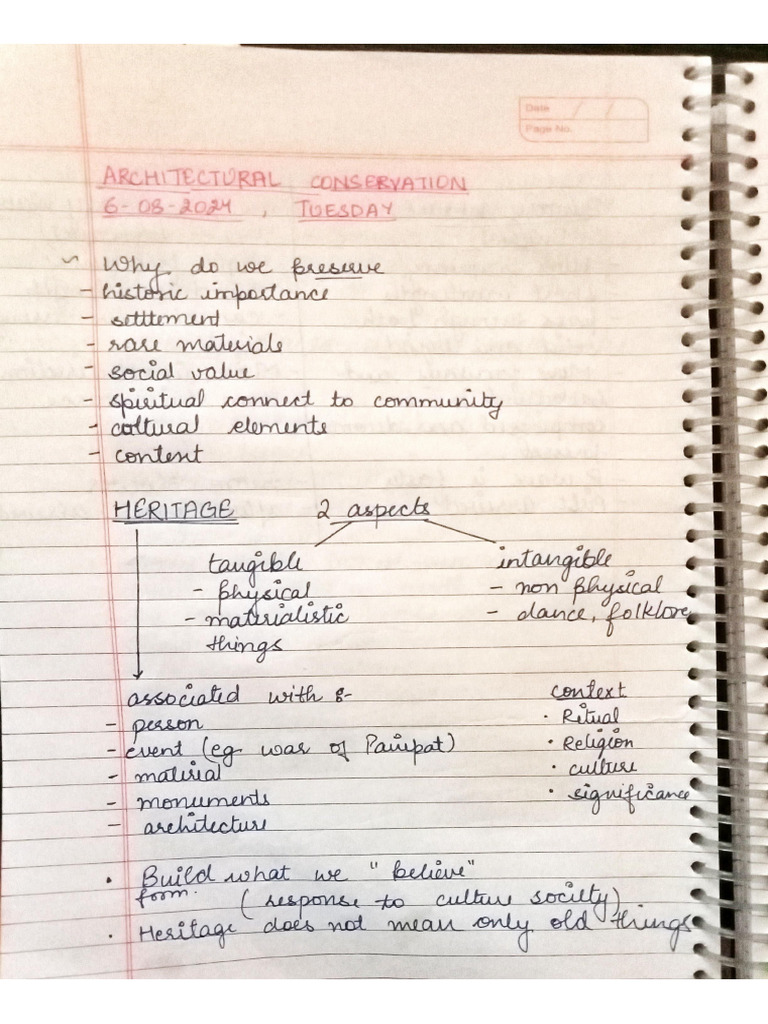 Date / /
Page No.
ARCHITECTURAL CONSERVATION
6-08-2024, TUESDAY
~ Why do we preserve
- historic importance
- settlement
- rare materials
- social value
- spiritual connect to community
- cultural elements
- content
HERITAGE 2 aspects
tangible intangible
- physical - non physical
- materialistic - dance, folklore
things
associated with :- context
- person • Ritual
- event (eg. war of Panipat) • Religion
- material • culture
- monuments • significance
- architecture
• Build what we "believe"
form. (response to culture society)
• Heritage does not mean only old things